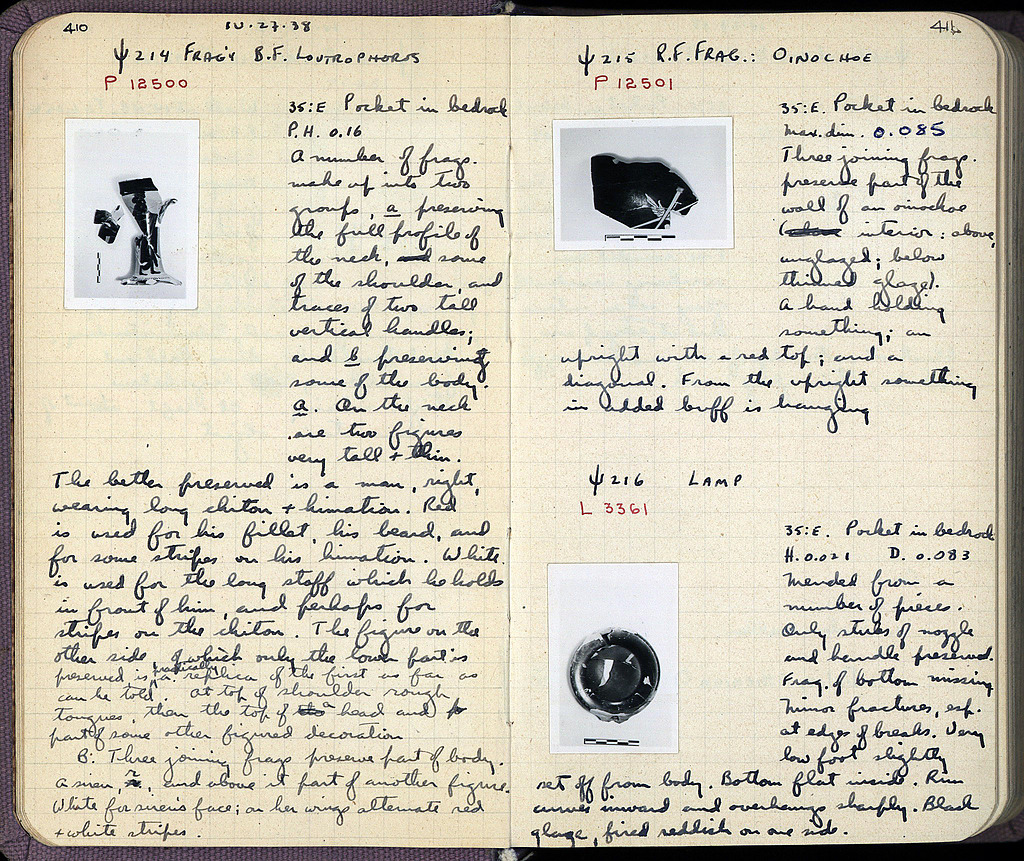 410
IV.27.38
Ψ214 FRAG'Y B.F. LOUTROPHOROS
P 12500
35:E Pocket in bedrock
P.H. 0.16
A number of frags.
make up into two
groups, a preserving
the full profile of
the neck, and some
of the shoulder, and
traces of two tall
vertical handles;
and b preserving
some of the body.
a. On the neck
are two figures
very tall + thin.
The better preserved is a man, right,
wearing long chiton + himation. Red
is used for his fillet, his beard, and
for some stripes on his himation. White
is used for the long staff which he holds
in front of him, and perhaps for
stripes on the chiton. The figure on the
other side of which only the lower part is
preserved is practically a replica of the first as far as
can be told. at top of shoulder rough
tongues, then the top of a head and
part of some other figured decoration
B: Three joining frags preserve part of body.
a siren, r., and above it part of another figure.
White for siren's face; on her wings alternate red
+ white stripes.
411
Ψ215 R.F. FRAG.: OINOCHOE
P 12501
35:E. Pocket in bedrock
Max. dim. 0.085
Three joining frags.
preserve part of the
wall of an oinochoe
(interior: above,
unglazed; below
thinned glaze).
A hand holding
something; an
upright with a red top; and a
diagonal. From the upright something
in added buff is hanging
Ψ216 LAMP
L 3361
35:E. Pocket in bedrock
H. 0.021 D. 0.083
Mended from a
number of pieces.
Only stubs of nozzle
and handle preserved.
Frag. of bottom missing
Minor fractures, esp.
at edges of breaks. Very
low foot slightly
set off from body. Bottom flat inside. Rim
curves inward and overhangs sharply. Black
glaze, fired reddish on one side.